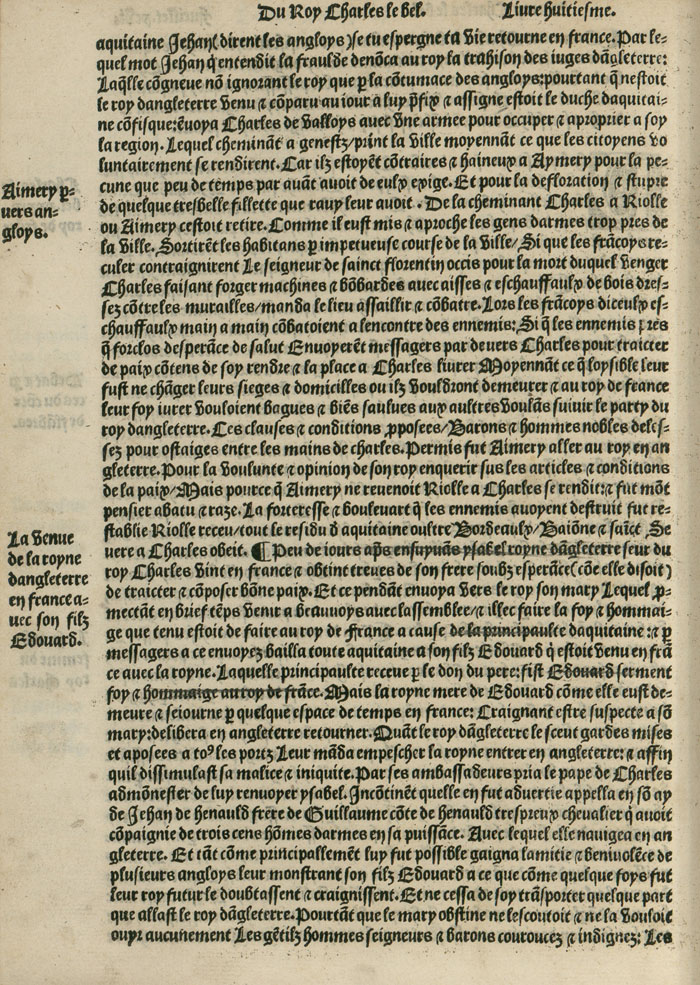 Du Roy Charles le bel. Liure huitiesme.
aquitaine Jehan (dirent les angloys) se tu espergne ta vie retourne en france. Par le-
quel mot Jehan q̄ entendit la fraulde denōca au roy la trahison des iuges dāgleterre:
Laq̄lle cōgneue nō ignorant le roy que ꝑ la cōtumace des angloys: pourtant q̄ nestoit
le roy dangleterre venu ⁊ cōparu au iour a luy p̄fix ⁊ assigne estoit le duche daquitai-
ne cōfisque: ēuoya Charles de Valloys auec vne armee pour occuper ⁊ aproprier a soy
la region. Lequel chemināt a genestz/print la ville moyennāt ce que les citoyens vo
luntairement se rendirent. Car ilz estoyēt cōtraires ⁊ haineux a Aymery pour la pe-
cune que peu de temps par auāt auoit de eulx exige. Et pour la defloration ⁊ stupre
de quelque tresbelle fillette que rauy leur auoit. De la cheminant Charles a Riolle
ou Aimery cestoit retire. Comme il eust mis ⁊ aproche les gens darmes trop pres de
la ville. Sortirēt les habitans ꝑ impetueuse course de la ville/ Si que les frācoys re-
culer contraignirent Le seigneur de sainct florentin occis pour la mort duquel venger
Charles faisant forger machines ⁊ bōbardes auec aisses ⁊ eschauffaulx de bois dres-
sez cōtre les murailles/manda le lieu assaillir ⁊ cōbatre. Lors les frācoys diceulx es-
chauffaulx main a main cōbatoient a lencontre des ennemis: Si q̄ les ennemis pres
q̄ forclos desperāce de salut Enuoyerēt messagers par deuers Charles pour traicter
de paix cōtens de soy rendre ⁊ la place a Charles liurer Moyennāt ce q̄ loysible leur
fust ne chāger leurs sieges ⁊ domicilles ou ilz vouldront demeurer ⁊ au roy de france
leur foy iurer vouloient bagues ⁊ biēs saulues aux aultres voulās suiuir le party du
roy dangleterre. Ces clauses ⁊ conditions ꝓposees/Barons ⁊ hommes nobles deles-
sez pour ostaiges entre les mains de charles. Permis fut Aimery aller au roy en an
gleterre. Pour la voulunte ⁊ opinion de son roy enquerir sus les articles ⁊ conditions
de la paix/Mais pource q̄ Aimery ne reuenoit Riolle a Charles se rendit: ⁊ fut mōt
pensier abatu ⁊ raze. La forteresse ⁊ bouleuart q̄ les ennemis auoyent destruit fut re-
stablie Riolle receu/tout le residu d aquitaine oultre Bordeaulx/Baiōne ⁊ saīct Se
uere a Charles obeit. ¶ Peu de iours ap̄s ensuyuās ysabel royne dāgleterre seur du
roy Charles vint en france ⁊ obtint treues de son frere soubz esperāce (cōe elle disoit)
de traicter ⁊ cōposer bōne paix. Et ce pendāt enuoya vers le roy son mary Lequel ꝓ-
mectāt en brief tēps venir a beauuoys auec lassemblee/⁊ illec faire la foy ⁊ hommai-
ge que tenu estoit de faire au roy de France a cause de la principaulte daquitaine: ⁊ ꝑ
messagers a ce enuoyez bailla toute aquitaine a son filz Edouard q̄ estoit venu en frā
ce auec la royne. Laquelle principaulte receue ꝑ le don du pere: fist Edouard serment
foy ⁊ hommaige au roy de frāce. Mais la royne mere de Edouard cōme elle eust de-
meure ⁊ seiourne ꝑ quelque espace de temps en france: Craignant estre suspecte a sō
mary: delibera en angleterre retourner. Quāt le roy dāgleterre le sceut gardes mises
et aposees a toꝰ les portz Leur māda empescher la royne entrer en angleterre: ⁊ affin
quil dissimulast sa malice ⁊ iniquite. Par ses ambassadeurs pria le pape de Charles
admōnester de luy renuoyer ysabel. Incōtinēt quelle en fut aduertie appella en sō ay
de Jehan de henauld frere de Guillaume cōte de henauld trespreux cheualier q̄ auoit
cōpaignie de trois cens hōmes darmes en sa puissāce. Auec lequel elle nauigea en an
gleterre. Et tāt cōme principallemēt luy fut possible gaigna lamitie ⁊ beniuolēce de
plusieurs angloys leur monstrant son filz Edouard a ce que cōme quelque foys fut
leur roy futur le doubtassent ⁊ craignissent. Et ne cessa de soy trāsporter quelque part
que allast le roy dāgleterre. Pourtāt que le mary obstine ne lescoutoit ⁊ ne la vouloit
ouyr aucunement Les gētilz hommes seigneurs ⁊ barons couroucez ⁊ indignez: Les
Aimery ꝑ-
uers an-
gloys.
La venue
de la royne
dangleterre
en france a-
uec son filz
Edouard.